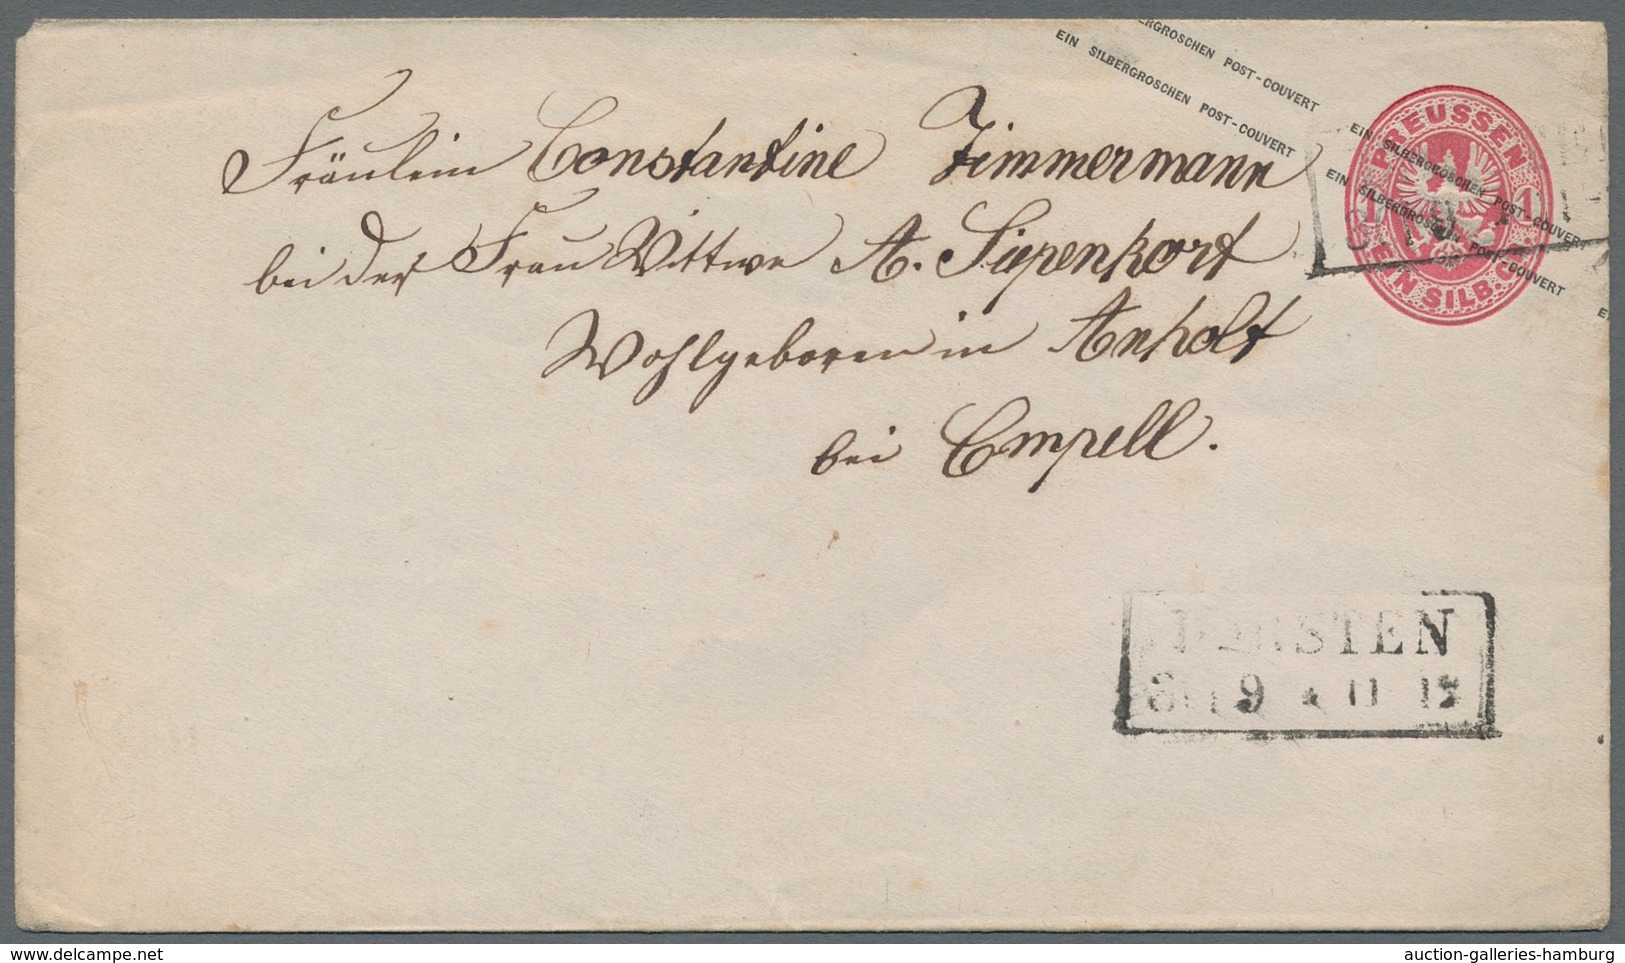 ERGROSCHEN POST-COUVERT
EIN SILBERGROSCHEN POST-COUVERT
EIN SILBERGROSCHEN POST-COUVERT
EIN SILBERGROSCHEN POST-COUVERT
PREUSSEN
1 1
EIN SILB. G
Fräulein Constantine Zimmermann
bei der Frau Wittwe A. Siepenkort
Wohlgeboren in Anholt
bei Empell.
DORSTEN
9 11
delcampe.net
auction-galleries-hamburg